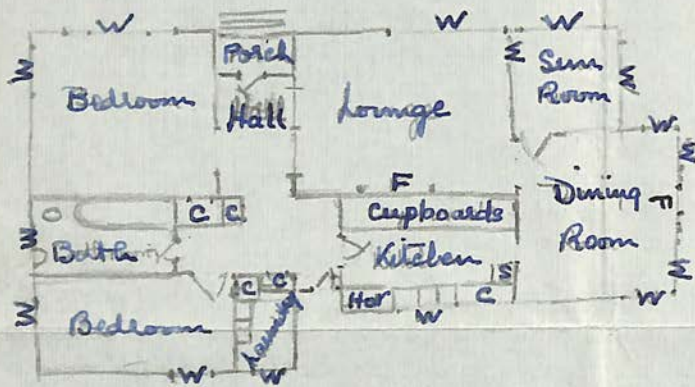 W W W
Porch
W Bedroom Hall Lounge W Sun W
Room
W
W
F
C C Cupboards Dining F
W Bath Kitchen Room
S W
C C Hot C W
W Bedroom Laundry W
W W